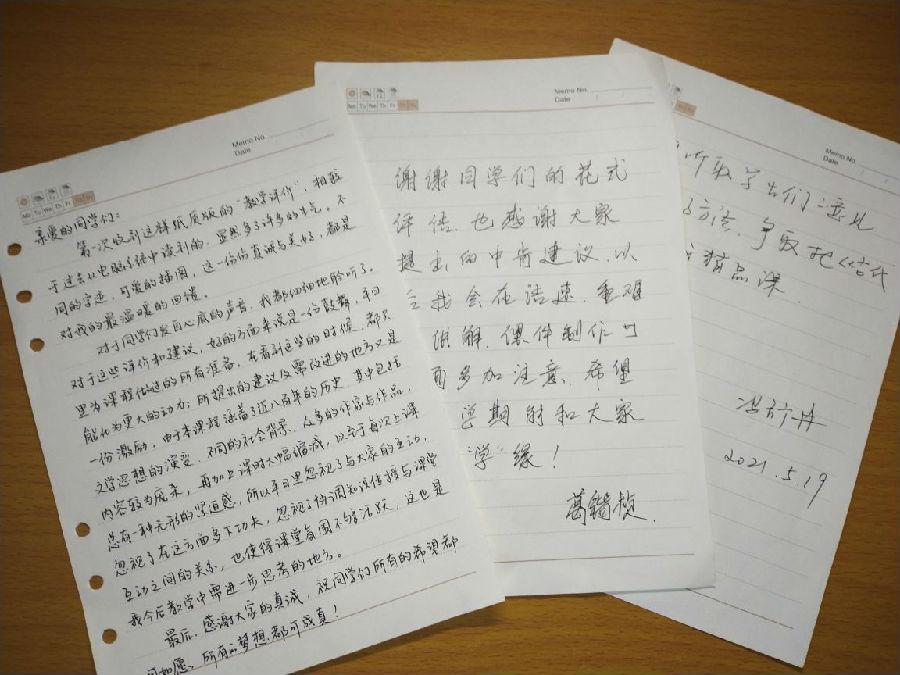 Memo No.
Date
Mo Tu We Th Fr Sa Su
亲爱的同学们：
第一次收到这样纸质版的“教学评价”，相较
于过去从电脑系统中读到的，显然多了许多的生气。不
同的字迹，可爱的插图，这一份份真诚与美好，都是
对我的最温暖的回馈。
对于同学们发自心底的声音，我都切切地聆听了。
对于这些评价和建议，好的方面来说是一份鼓舞，平日
里为课程做过的所有准备，在看到这些的时候，都只
能化为更大的动力；所提出的建议及需改进的地方又是
一份激励，由于本课程涵盖了近八百年的历史，其中包括
文学思想的演变、不同的社会背景、众多的作家与作品，
内容较为庞杂，再加上课时大幅缩减，以至于每次上课
总有一种无形的紧迫感，所以平日里忽视了与大家的互动，
忽视了在这方面多下功夫，忽视了协调知识传授与课堂
互动之间的关系，也使得课堂氛围不够活跃，这也是
我今后教学中需进一步思考的地方。
最后，感谢大家的真诚，祝同学们所有的希望都
如愿，所有的梦想都可成真！
Memo No.
Date
Mo Tu We Th Fr Sa Su
谢谢同学们的花式
评传，也感谢大家
提出的中肯建议，以
我会在语速、重难
讲解、课件制作
多加注意，希望
学期时和大家
“学”缘！
葛
Memo No.
Date
听取学生们意见
方法，争取把《古代
精品课
2021.5.19